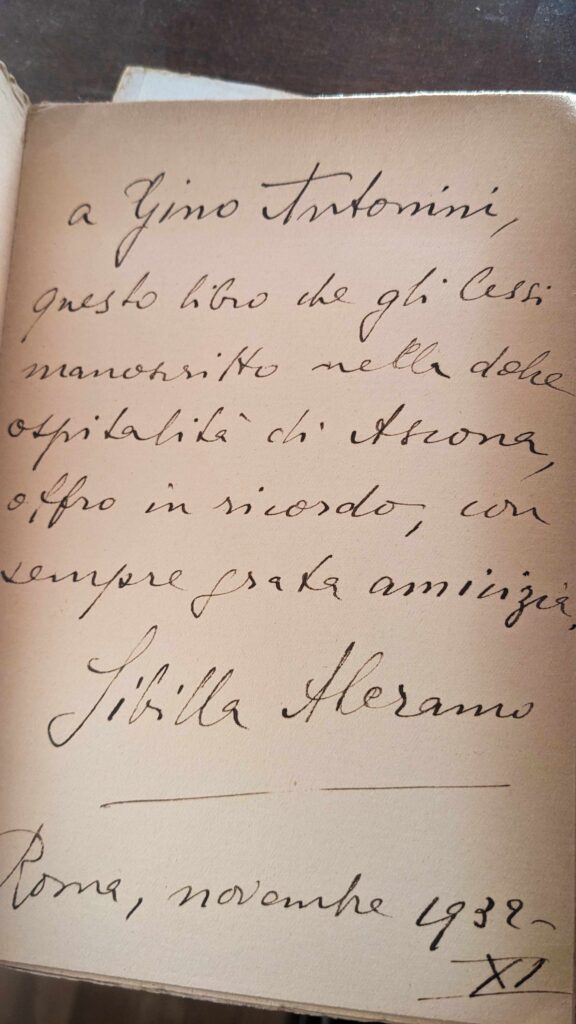 a Gino Antonini,
questo libro che gli lessi
manoscritto nella dolce
ospitalità di Ascona,
offro in ricordo, con
sempre grata amicizia,
Sibilla Aleramo
Roma, novembre 1932-
XI